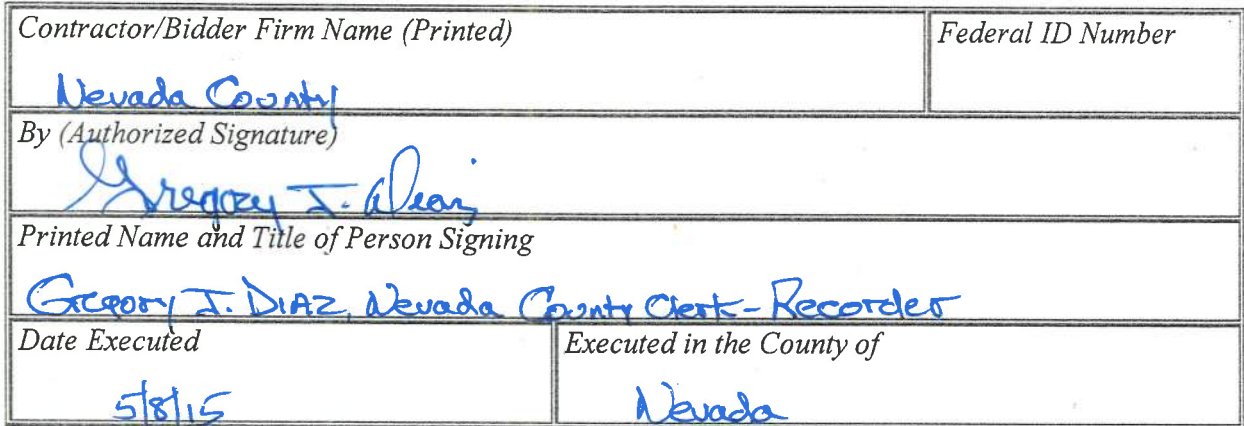 Contractor/Bidder Firm Name (Printed)
Federal ID Number
Nevada County
By (Authorized Signature)
Gregory J. Diaz
Printed Name and Title of Person Signing
Gregory J. DIAZ, Nevada County Clerk-Recorder
Date Executed
Executed in the County of
5/8/15
Nevada